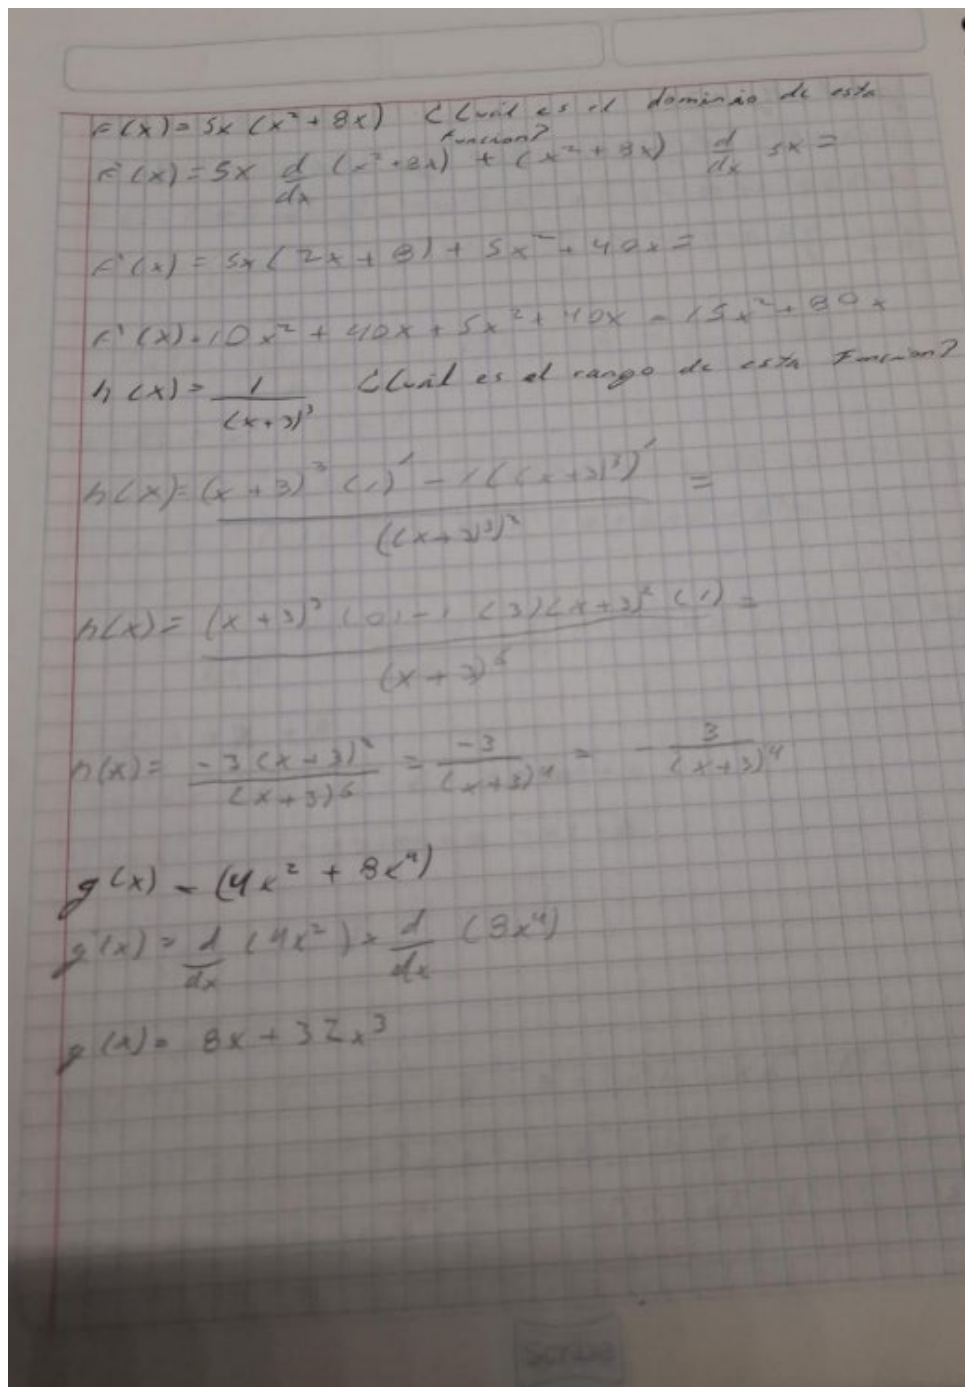 F(x) = 5x (x² + 8x) ¿Cuál es el dominio de esta
Funcion?
F'(x) = 5x d/dx (x² + 8x) + (x² + 8x) d/dx 5x =
F'(x) = 5x (2x + 8) + 5x² + 40x =
F'(x) = 10x² + 40x + 5x² + 40x = 15x² + 80x
h(x) = 1/(x+3)³ ¿Cuál es el rango de esta Funcion?
h(x) = ((x+3)³ (1)' - 1((x+3)³)')/((x+3)³)² =
h(x) = ((x+3)³ (0) - 1 (3)(x+3)² (1))/(x+3)⁶ =
h(x) = (-3(x+3)²)/(x+3)⁶ = -3/(x+3)⁴ = - 3/(x+3)⁴
g(x) = (4x² + 8x⁴)
g'(x) = d/dx (4x²) + d/dx (8x⁴)
g'(x) = 8x + 32x³
Scribe